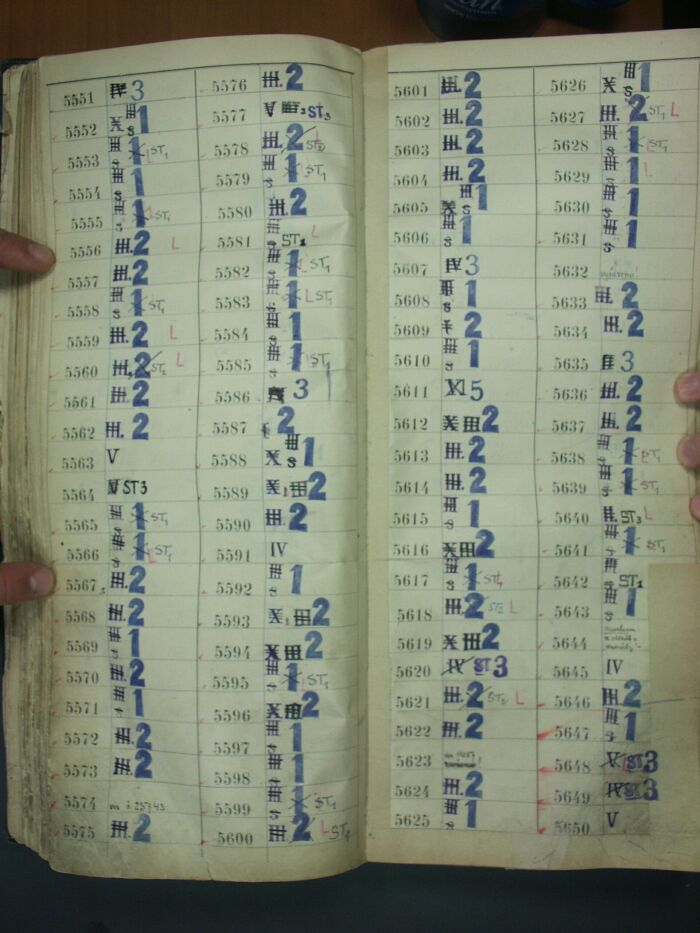 5551 IV 3
5552 X III s 1
5553 III s 1 ST1
5554 III s 1
5555 III s 1 L ST1
5556 III. 2 L
5557 III. 2
5558 III s 1 ST1
5559 III. 2 L
5560 III. 2 ST2 L
5561 III. 2
5562 III. 2
5563 V
5564 IV ST3
5565 III s 1 ST1
5566 III s 1 L ST1
5567 III. 2
5568 III. 2
5569 III s 1
5570 III. 2
5571 III s 1
5572 III. 2
5573 III. 2
5574
5575 III. 2
5576 III. 2
5577 V ST3
5578 III. 2 ST2
5579 III s 1 ST1
5580 III. 2
5581 III s ST1 L
5582 III s 1 ST1
5583 III s 1 L ST1
5584 III s 1
5585 III s 1 ST1
5586 3
5587 2
5588 X III s 1
5589 X III 2
5590 III. 2
5591 IV
5592 III s 1
5593 X III 2
5594 X III 2
5595 III s 1 ST1
5596 X III 2
5597 III s 1
5598 III s 1
5599 III s 1 ST1
5600 III. 2 L ST1
5601 III. 2
5602 III. 2
5603 III. 2
5604 III. 2
5605 X III s 1
5606 III s 1
5607 IV 3
5608 III s 1
5609 2
5610 III s 1
5611 XI 5
5612 X III 2
5613 III. 2
5614 III. 2
5615 III s 1
5616 X III 2
5617 III s 1 ST1
5618 III. 2 ST2 L
5619 X III 2
5620 IV ST3
5621 III. 2 ST2 L
5622 III. 2
5623
5624 III. 2
5625 III s 1
5626 X III s 1
5627 III. 2 ST1 L
5628 III s 1 ST1
5629 III s 1 L
5630 III s 1
5631 III s 1
5632
5633 III. 2
5634 III. 2
5635 3
5636 III. 2
5637 III. 2
5638 III s 1 ST1
5639 III s 1 ST1
5640 II. ST3 L
5641 III s 1 ST1
5642 III s ST1
5643 III s 1
5644
5645 IV
5646 III. 2
5647 III s 1
5648 V ST3
5649 IV ST3
5650 V